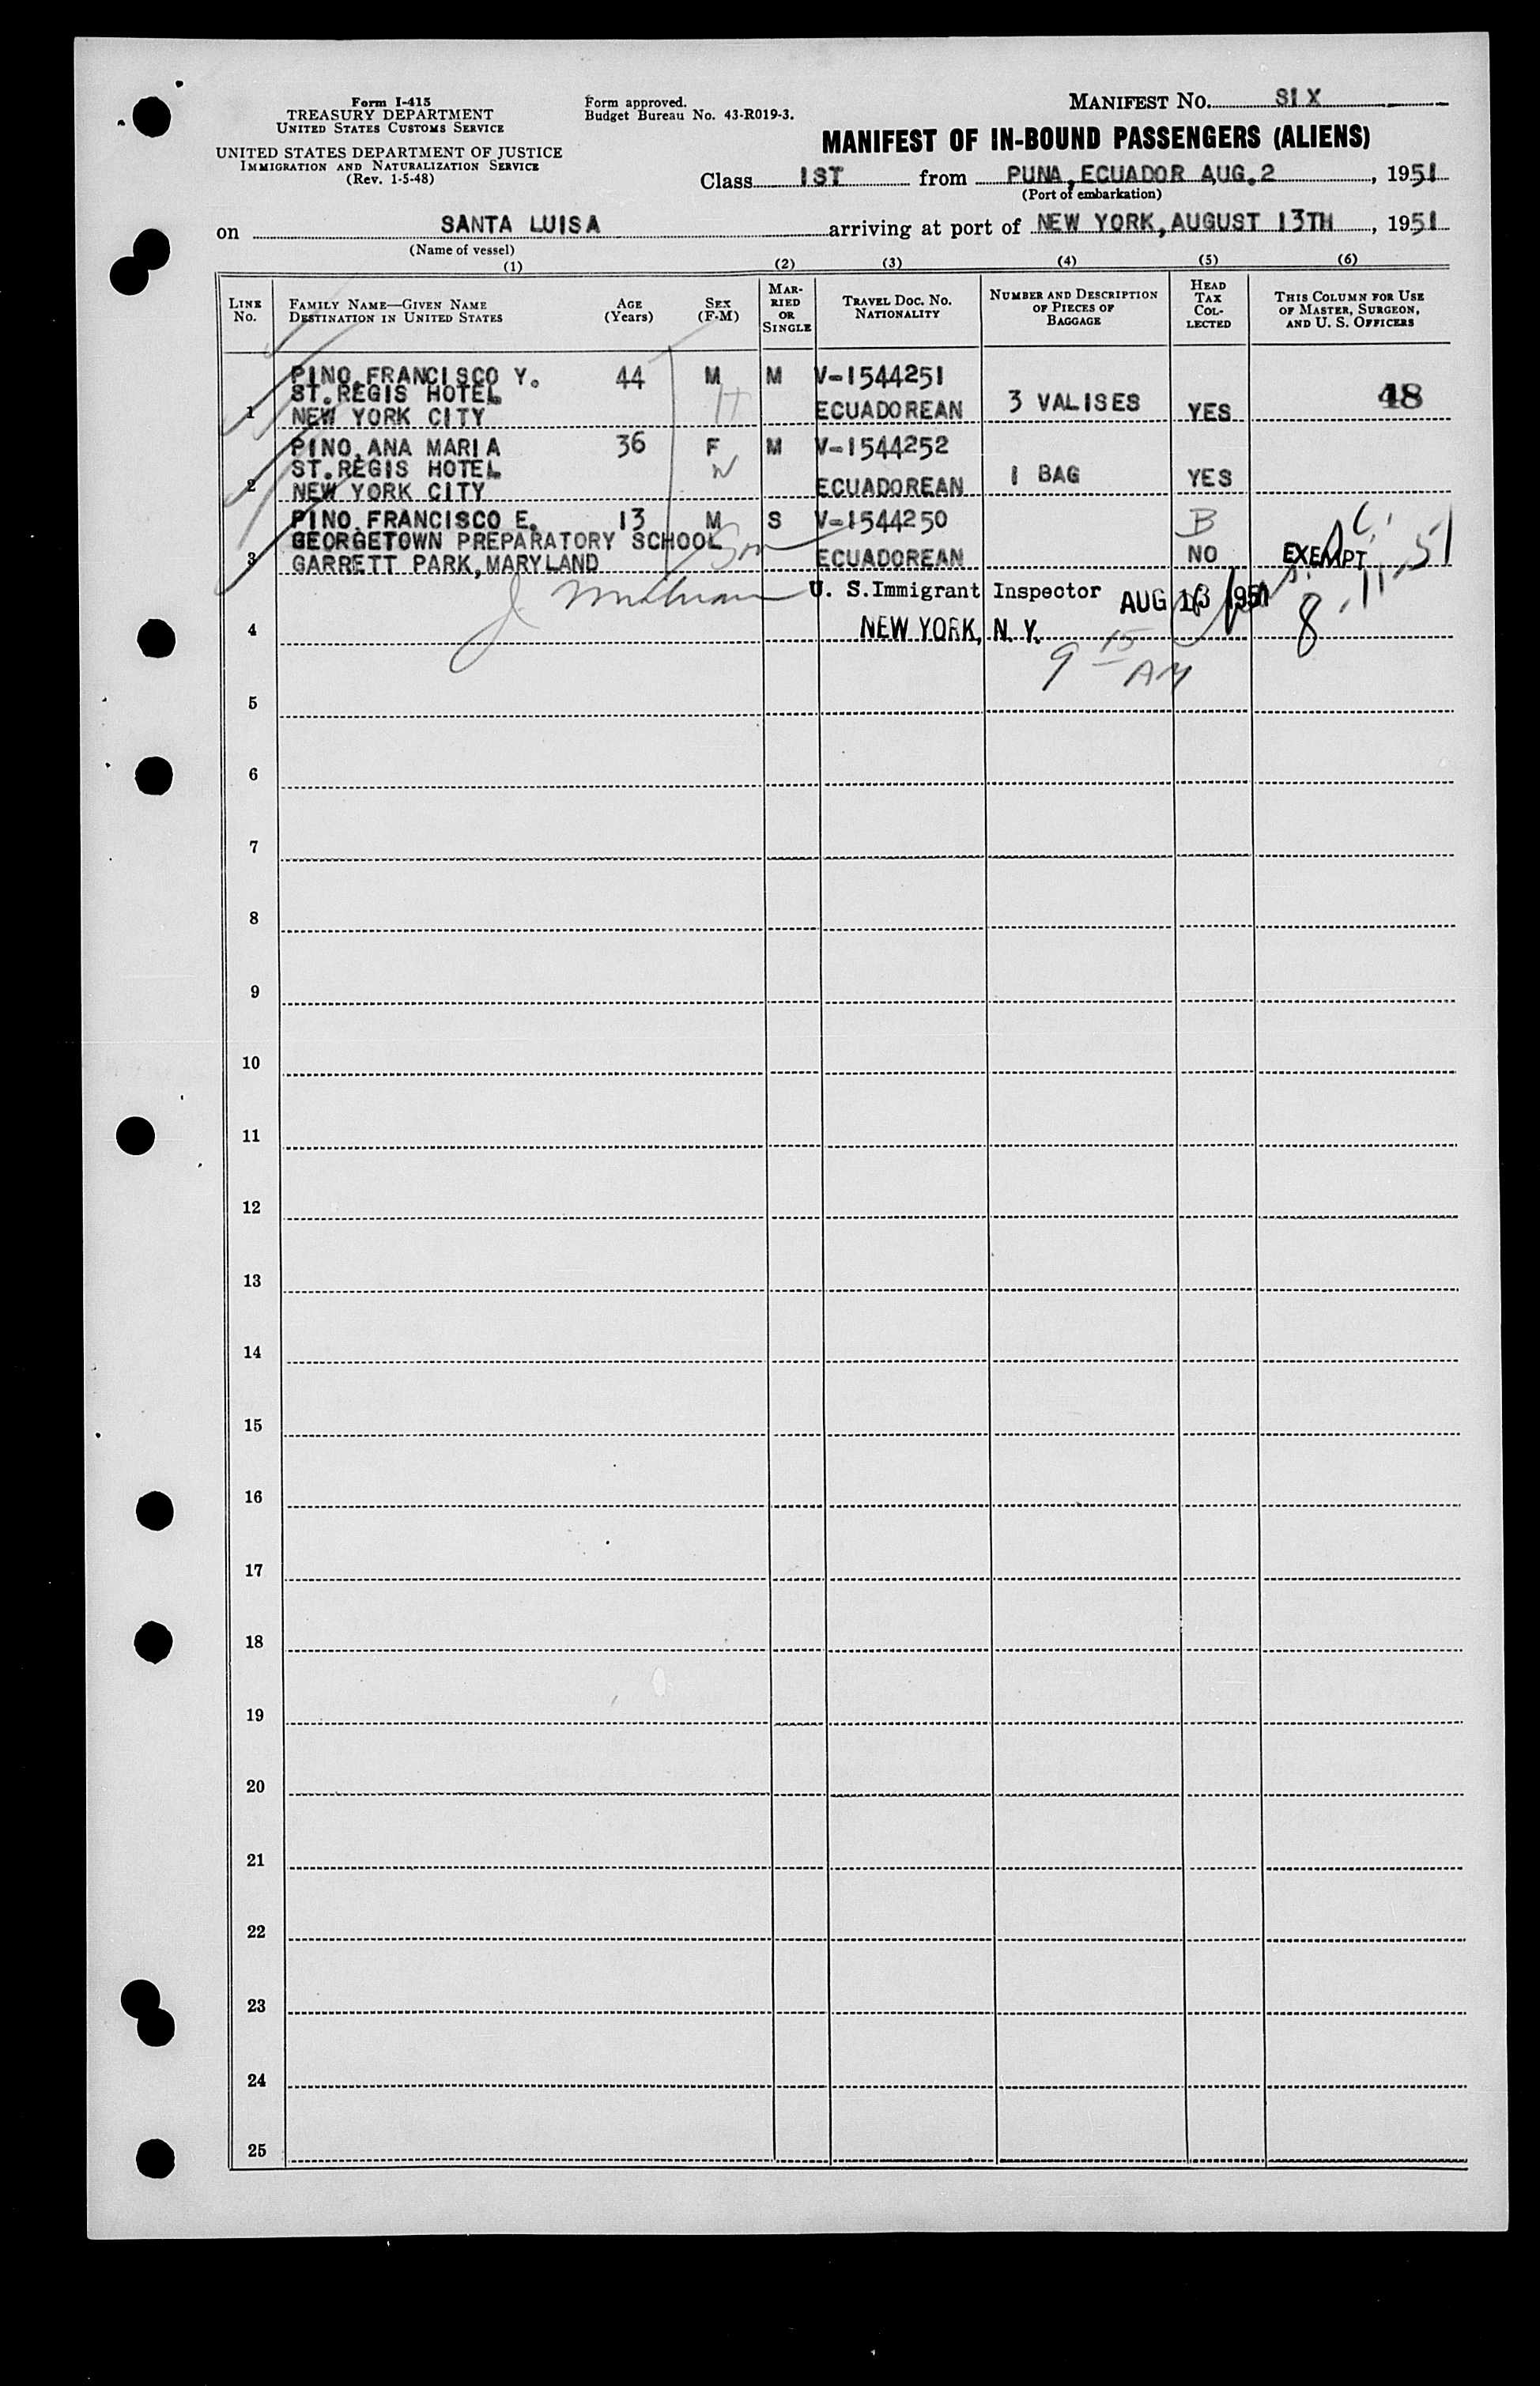 Form I-415
TREASURY DEPARTMENT
UNITED STATES CUSTOMS SERVICE
UNITED STATES DEPARTMENT OF JUSTICE
IMMIGRATION AND NATURALIZATION SERVICE
(Rev. 1-5-48)
Form approved.
Budget Bureau No. 43-R019-3.
MANIFEST NO. SIX
MANIFEST OF IN-BOUND PASSENGERS (ALIENS)
Class 1ST from PUNA, ECUADOR AUG.2, 1951
(Port of embarkation)
on SANTA LUISA arriving at port of NEW YORK, AUGUST 13TH, 1951
(Name of vessel)
(1) (2) (3) (4) (5) (6)
LINE No. FAMILY NAME—GIVEN NAME DESTINATION IN UNITED STATES AGE (Years) SEX (F-M) MARRIED OR SINGLE TRAVEL DOC. NO. NATIONALITY NUMBER AND DESCRIPTION OF PIECES OF BAGGAGE HEAD TAX COLLECTED THIS COLUMN FOR USE OF MASTER, SURGEON, AND U. S. OFFICERS
PINO, FRANCISCO Y. 44 M M V-1544251
ST. REGIS HOTEL H 3 VALISES 48
1 NEW YORK CITY ECUADOREAN YES
PINO, ANA MARIA 36 F M V-1544252
ST. REGIS HOTEL W 1 BAG YES
2 NEW YORK CITY ECUADOREAN
PINO, FRANCISCO E. 13 M S V-1544250 B
GEORGETOWN PREPARATORY SCHOOL Son
3 GARRETT PARK, MARYLAND ECUADOREAN NO EXEMPT
U. S. Immigrant Inspector AUG 13 1951 8-11-51
4 NEW YORK, N. Y.
9 15 AM
5
6
7
8
9
10
11
12
13
14
15
16
17
18
19
20
21
22
23
24
25